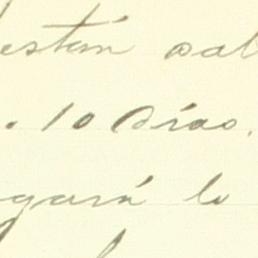 están sal
. 10 Días.
gará lo